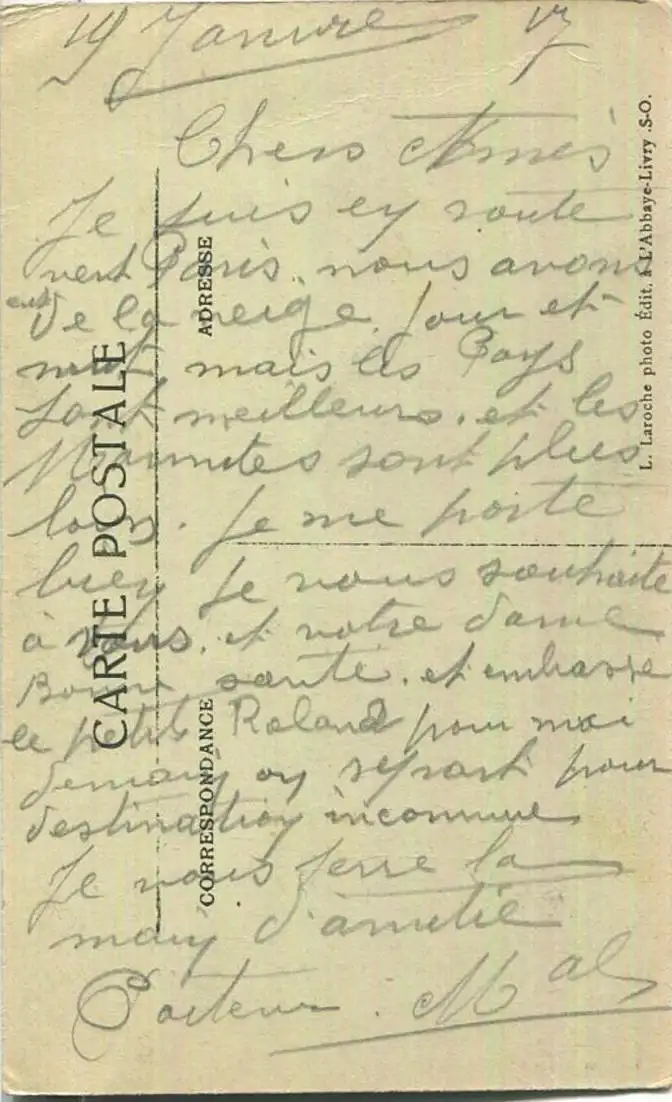 19 Janvie 17
Chers Amis
Je suis en route
vert Paris, nous avons
eut
de la neige jour et
nuit mais les Pays
sont meilleurs. et les
Marmites sont plus
loin. Je me porte
bien Je vous souhaite
à vous. et votre dame
Bonne santé. et embrasse
le petit Roland pour moi
demain on repart pour
destination inconnue
Je vous serre la
main d'amitié
Mal
CARTE POSTALE
CORRESPONDANCE
ADRESSE
L. Laroche photo Édit. à L'Abbaye-Livry .S-O.